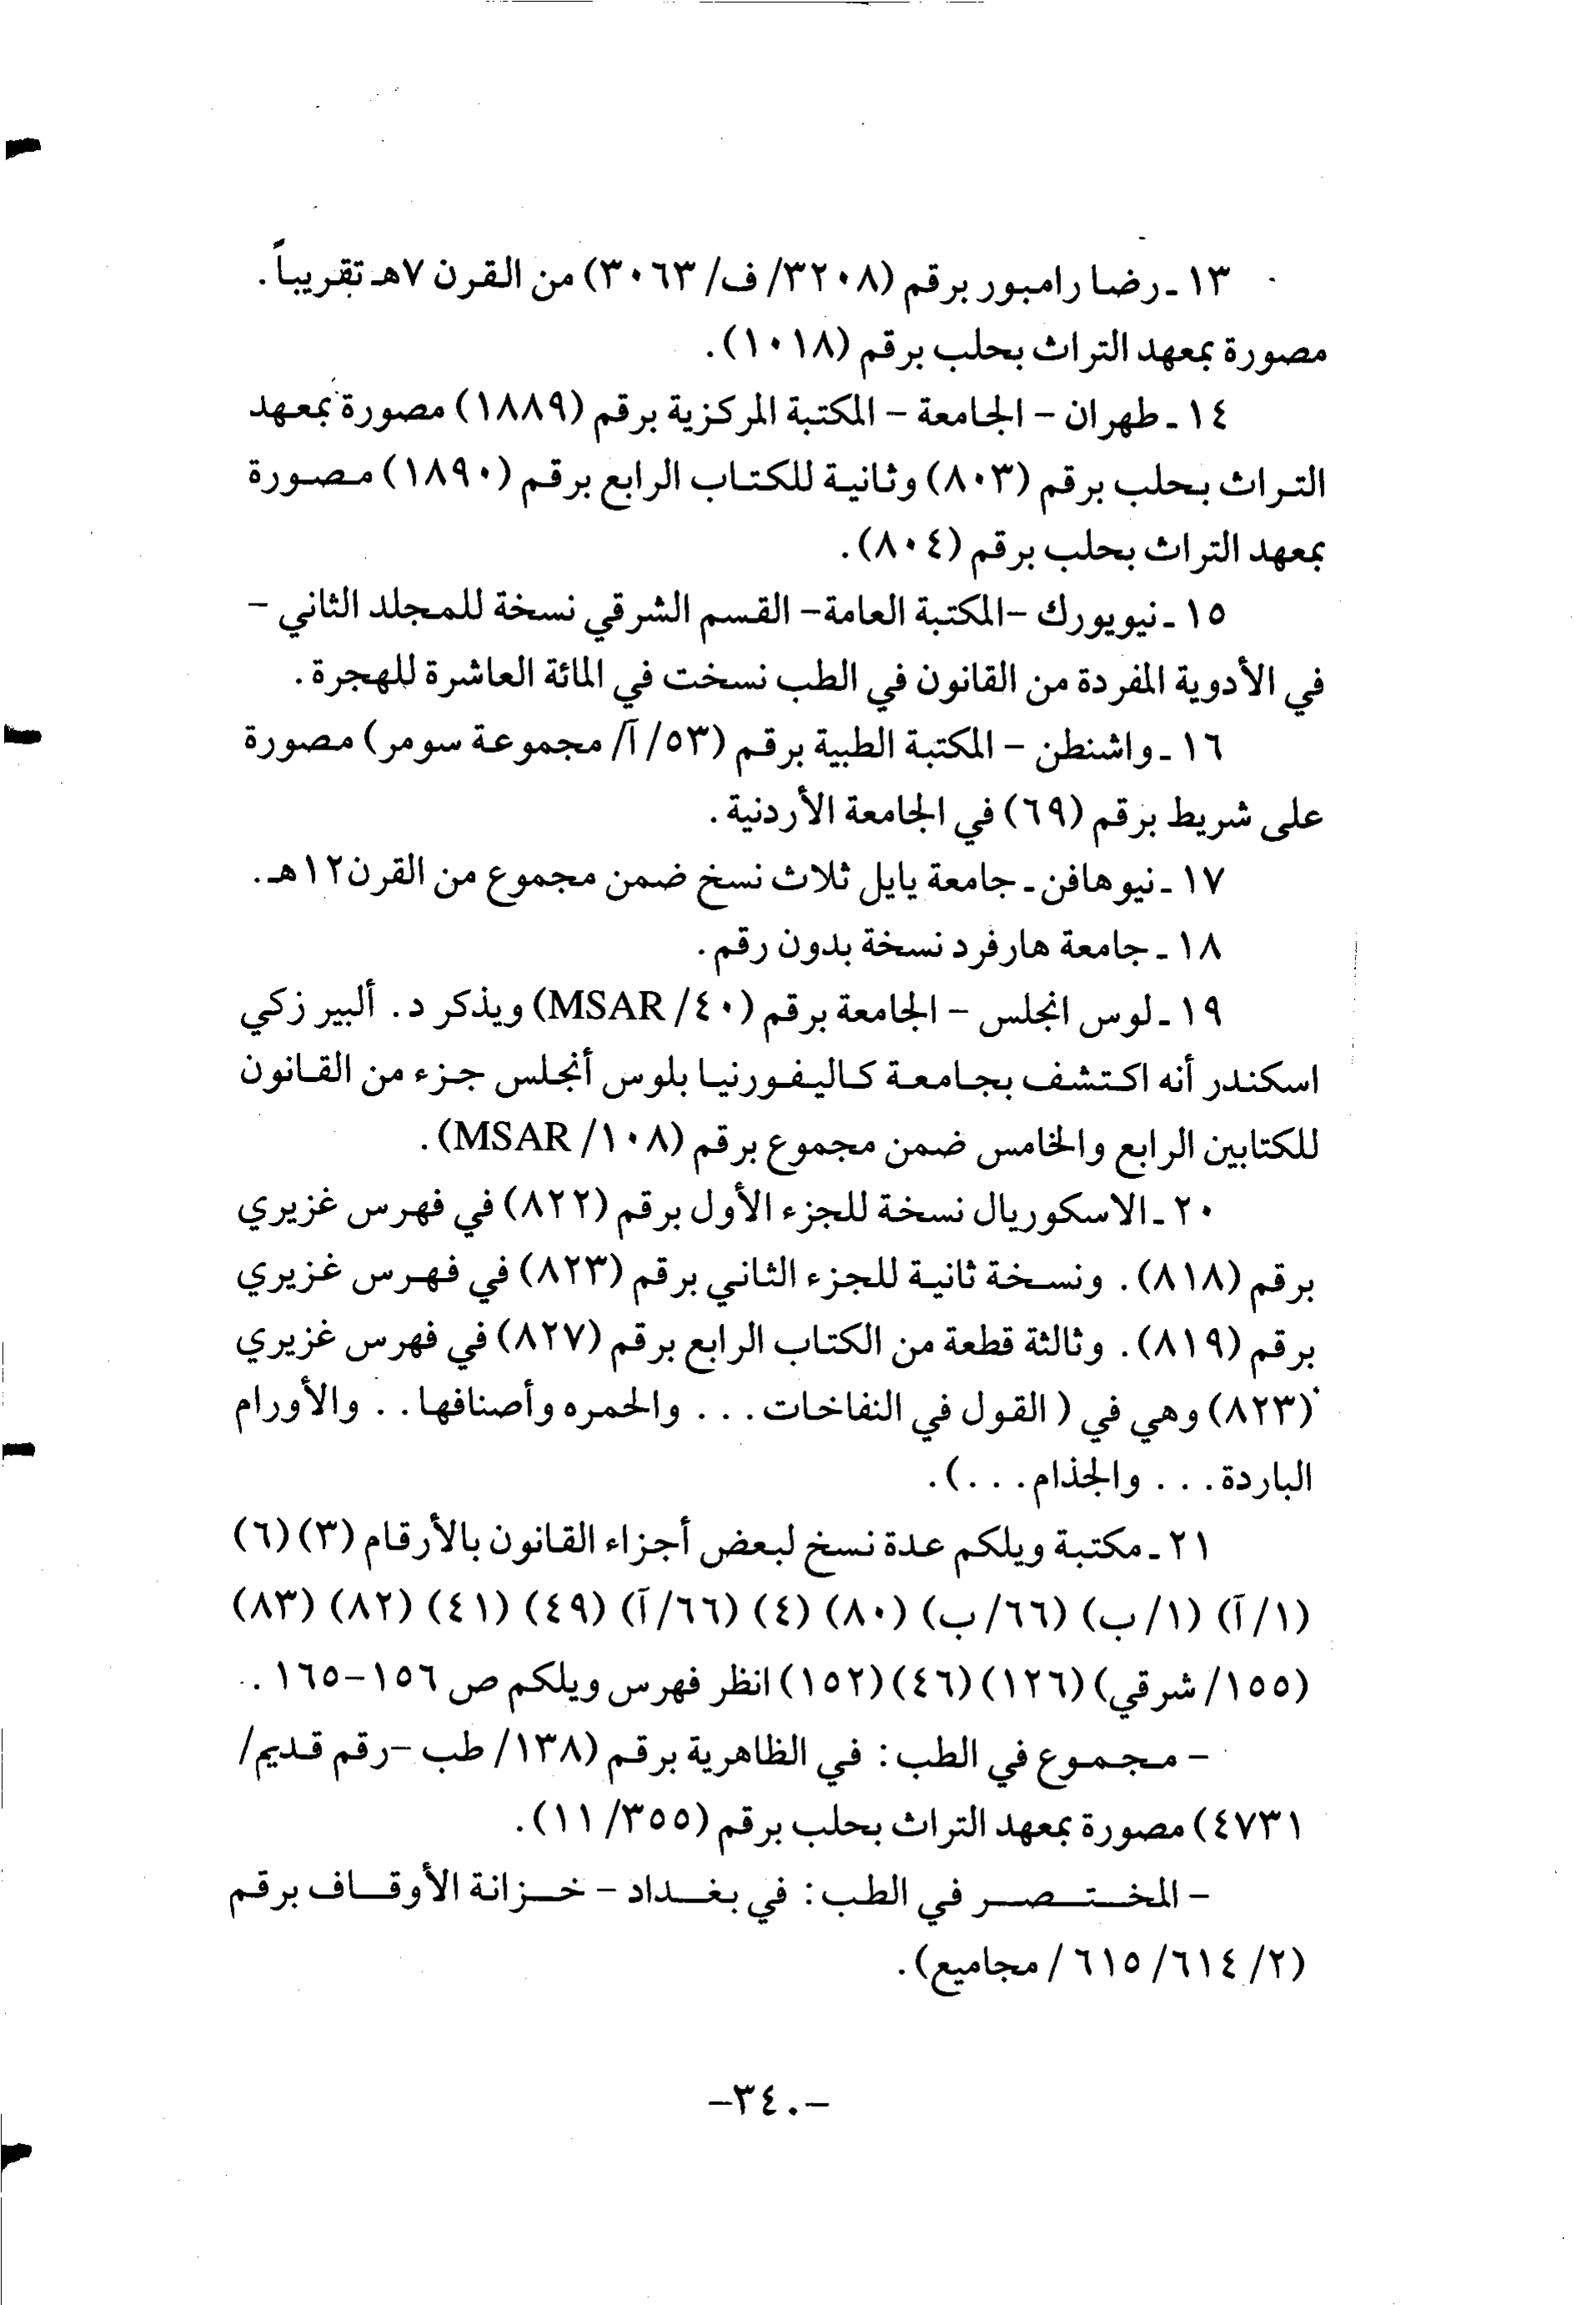 ١٣ ـ رضا رامبور برقم (٣٢٠٨/ ف/ ٣٠٦٣) من القرن ٧هـ تقريباً.
مصورة بمعهد التراث بحلب برقم (١٠١٨).
١٤ ـ طهران - الجامعة - المكتبة المركزية برقم (١٨٨٩) مصورة بمعهد
التراث بحلب برقم (٨٠٣) وثانية للكتاب الرابع برقم (١٨٩٠) مصورة
بمعهد التراث بحلب برقم (٨٠٤).
١٥ ـ نيويورك -المكتبة العامة- القسم الشرقي نسخة للمجلد الثاني -
في الأدوية المفردة من القانون في الطب نسخت في المائة العاشرة للهجرة.
١٦ ـ واشنطن - المكتبة الطبية برقم (٥٣/ آ/ مجموعة سومر) مصورة
على شريط برقم (٦٩) في الجامعة الأردنية.
١٧ ـ نيوهافن ـ جامعة يايل ثلاث نسخ ضمن مجموع من القرن ١٢هـ.
١٨ ـ جامعة هارفرد نسخة بدون رقم.
١٩ ـ لوس انجلس - الجامعة برقم (٤٠/ MSAR) ويذكر د. ألبير زكي
اسكندر أنه اكتشف بجامعة كاليفورنيا بلوس أنجلس جزء من القانون
للكتابين الرابع والخامس ضمن مجموع برقم (١٠٨/ MSAR).
٢٠ ـ الاسكوريال نسخة للجزء الأول برقم (٨٢٢) في فهرس غزيري
برقم (٨١٨). ونسخة ثانية للجزء الثاني برقم (٨٢٣) في فهرس غزيري
برقم (٨١٩). وثالثة قطعة من الكتاب الرابع برقم (٨٢٧) في فهرس غزيري
(٨٢٣) وهي في ( القول في النفاخات... والحمره وأصنافها.. والأورام
الباردة... والجذام...).
٢١ ـ مكتبة ويلكم عدة نسخ لبعض أجزاء القانون بالأرقام (٣) (٦)
(١/ آ) (١/ ب) (٦٦/ ب) (٨٠) (٤) (٦٦/ آ) (٤٩) (٤١) (٨٢) (٨٣)
(١٥٥/ شرقي) (١٢٦) (٤٦) (١٥٢) انظر فهرس ويلكم ص ١٥٦-١٦٥.
- مجموع في الطب: في الظاهرية برقم (١٣٨/ طب -رقم قديم/
٤٧٣١) مصورة بمعهد التراث بحلب برقم (٣٥٥/ ١١).
- المختصر في الطب: في بغداد - خزانة الأوقاف برقم
(٢/ ٦١٤/ ٦١٥/ مجاميع).
-٣٤٠-